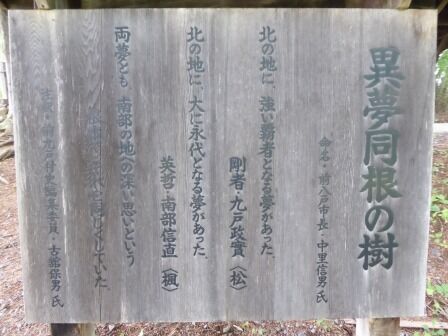 異夢同根の樹
命名・前八戸市長・中里信男氏
北の地に、強い覇者となる夢があった。
剛者・九戸政實〈松〉
北の地に、大に永代となる夢があった。
英哲・南部信直〈楓〉
両夢とも、南部の地への深い思いという
同じくしていた。
古舘保男氏